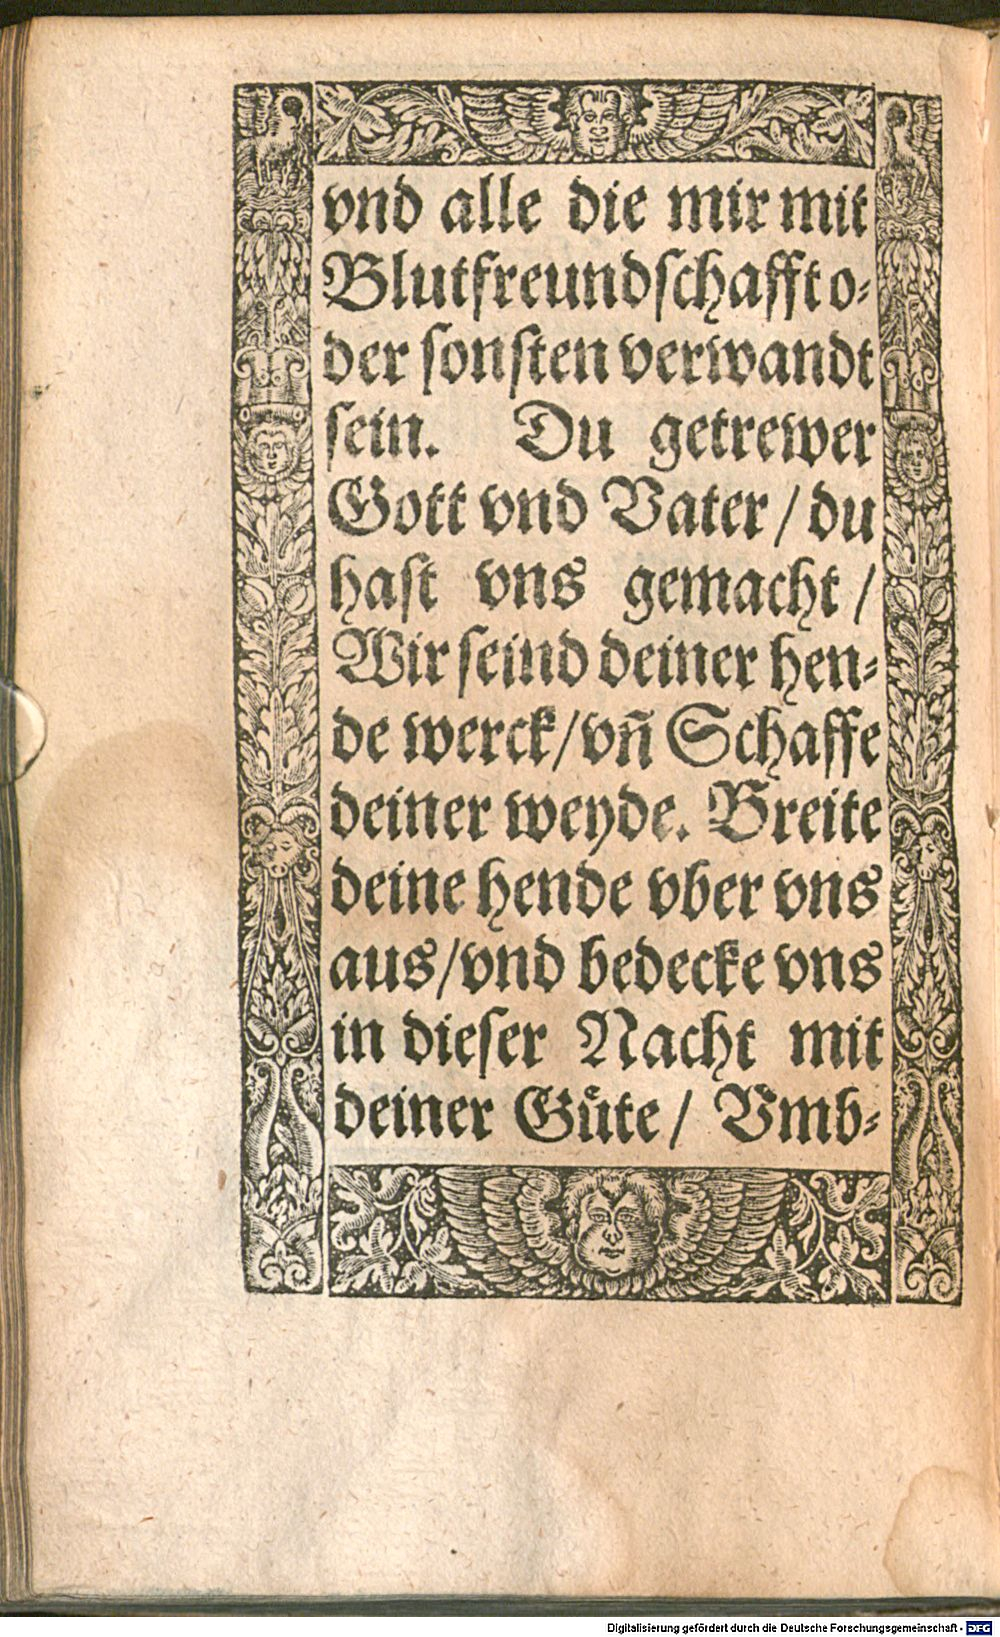 vnd alle die mir mit
Blutfreundſchafft o⸗
der ſonſten verwandt
ſein. Du getrewer
Gott vnd Vater / du
haſt vns gemacht /
Wir ſeind deiner hen⸗
de werck / vñ Schaffe
deiner weyde. Breite
deine hende vber vns
aus / vnd bedecke vns
in dieſer Nacht mit
deiner Guͤte / Vmb⸗
Digitalisierung gefördert durch die Deutsche Forschungsgemeinschaft - DFG